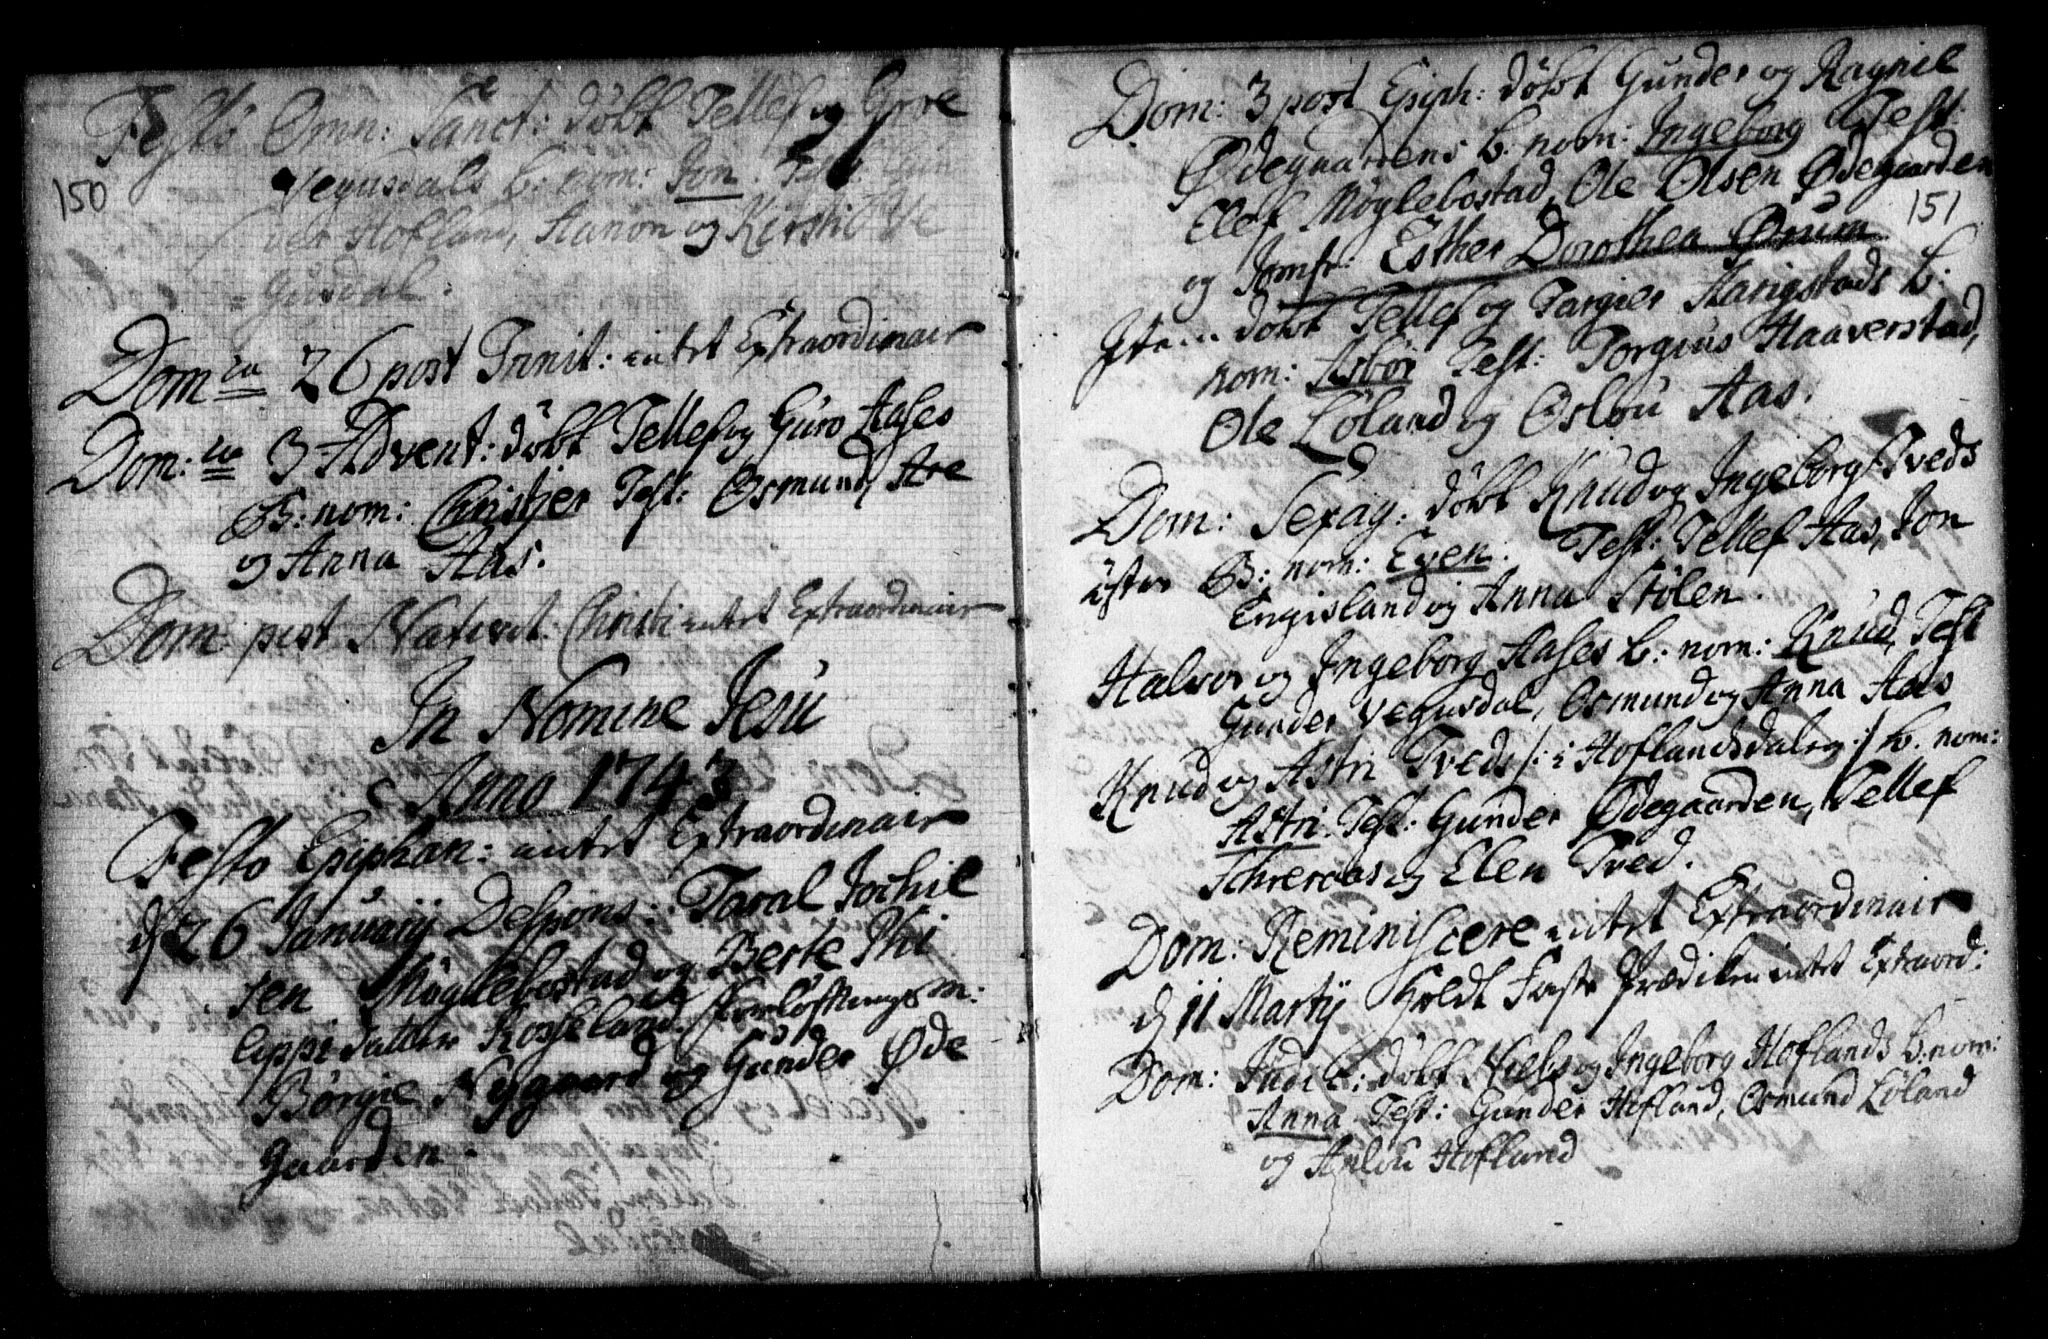 150
Festo Omn: Sanct: döbt Tellef og Groe
Vegusdals b: nom: Jon. Test: Gun
der Hofland, Aanon og Kirsti Ve
= Gusdal.
Dom ca 26 post Trinit: intet Extraordinair
Dom: ca 3 Advent: döbt Tellef og Guro Aases
B: nom: Christjer Test: Osmund, Are
og Anna Aas.
Dom post Nativit. Christi intet Extraordinair
In Nomine Jesu
Anno 1743
Festo Epiphan: intet Extraordinair
d 26 Januarij Despons: Taral Jochil
sen Möglebostad og Berte Phi
lippi datter Roseland. Forlöftnings m:
Börgie Nygaard og Gunder Øde
Gaarden.
151
Dom: 3 post Epiph: döbt Gunder og Ragnil
Ødegaardens b. nom: Ingeborg Test:
Elef Möglebostad, Ole Olsen Ødegaarden
og Jomfr: Esther Dorothea Ørum
Item döbt Tellef og Targier Harigstads b.
nom: Asbör Test: Torgius Haaverstad,
Ole Löland og Oslou Aas.
Dom: Sexag: döbt Knud og Ingeborg Tveds
üster B: nom: Even. Test: Tellef Aas, Jon
Engisland og Anna Stölen.
Halvor og Ingeborg Aases b: nom: Knud, Test
Gunder Vegusdal, Osmund og Anna Aas
Knud og Astri Tveds /: i Hoflandsdalen :/ b. nom:
Astri. Test: Gunder Ødegaarden, Tellef
Schreraas og Elen Tved.
Dom: Reminiscere intet Extraordinair
d 11 Martij Holdt Faste Prædiken intet Extraord:
Dom: Judic: döbt Niels og Ingeborg Hoflands b: nom:
Anna Test: Gunder Hofland, Osmund Löland
og Anlou Hofland